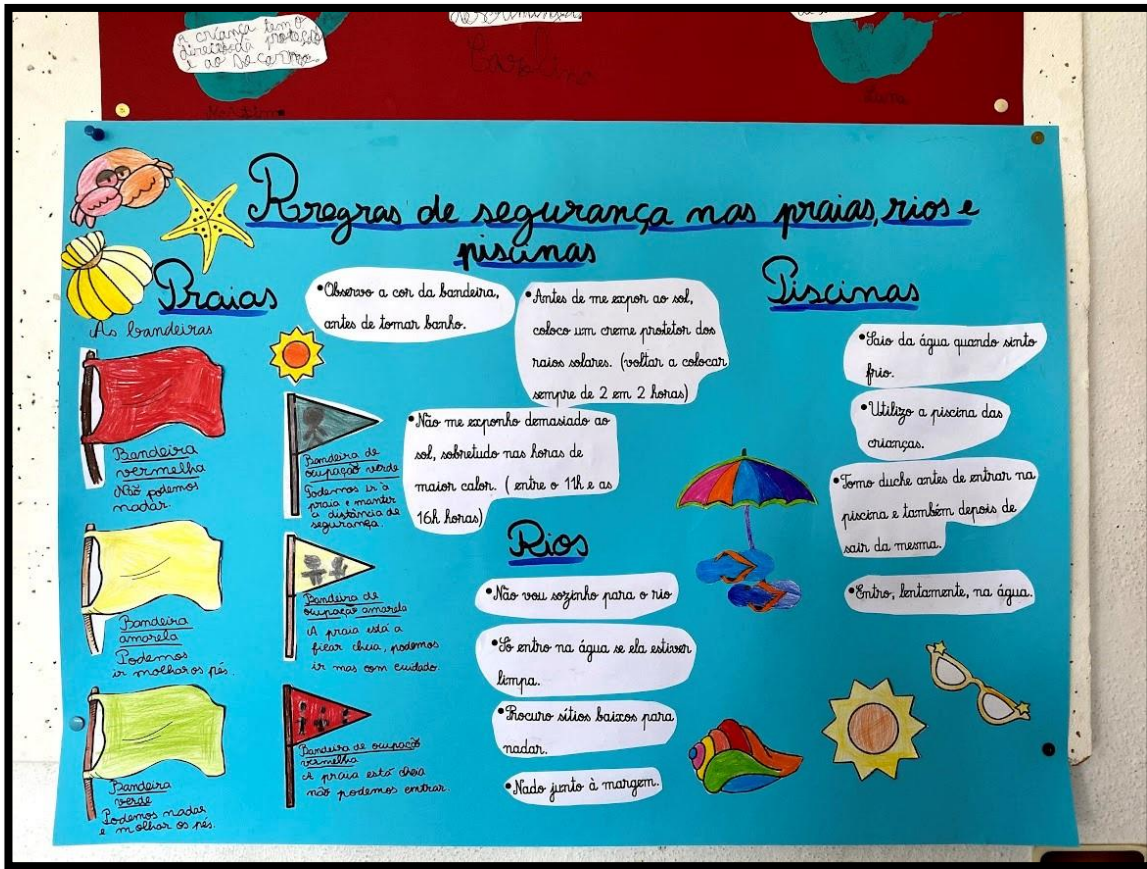 A criança tem o
direito à proteção
e ao
Carolina
Rregras de segurança nas praias, rios e
piscinas
Praias
As bandeiras
Bandeira
vermelha
Não podemos
nadar.
Bandeira
amarela
Podemos
ir molhar os pés.
Bandeira
verde
Podemos nadar
e molhar os pés.
Bandeira de
ocupação verde
Podemos ir à
praia e manter
a distância de
segurança.
Bandeira de
ocupação amarela
A praia está a
ficar cheia, podemos
ir mas com cuidado.
Bandeira de ocupação
vermelha
A praia está cheia
não podemos entrar.
•Observo a cor da bandeira,
antes de tomar banho.
•Antes de me expor ao sol,
coloco um creme protetor dos
raios solares. (voltar a colocar
sempre de 2 em 2 horas)
•Não me exponho demasiado ao
sol, sobretudo nas horas de
maior calor. ( entre o 11h e as
16h horas)
Rios
•Não vou sozinho para o rio
•Só entro na água se ela estiver
limpa.
•Procuro sítios baixos para
nadar.
•Nado junto à margem.
Piscinas
•Saio da água quando sinto
frio.
•Utilizo a piscina das
crianças.
•Tomo duche antes de entrar na
piscina e também depois de
sair da mesma.
•Entro, lentamente, na água.